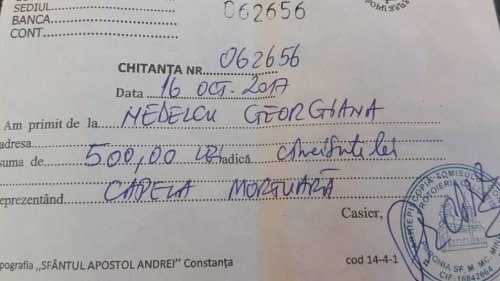 SEDIUL
BANCA
CONT
062656
CHITANȚA NR. 062656
Data 16 OCT. 2017
Am primit de la NEDELCU GEORGIANA
adresa
suma de 500,00 LEI adică cincisute lei
reprezentând CAPELA MORTUARĂ
Casier,
ARHIEPISCOPIA TOMISULUI
PROTOIERIA
PAROHIA SF. M. MC. MINA
CIF 16842064
pografia „SFÂNTUL APOSTOL ANDREI” Constanța
cod 14-4-1